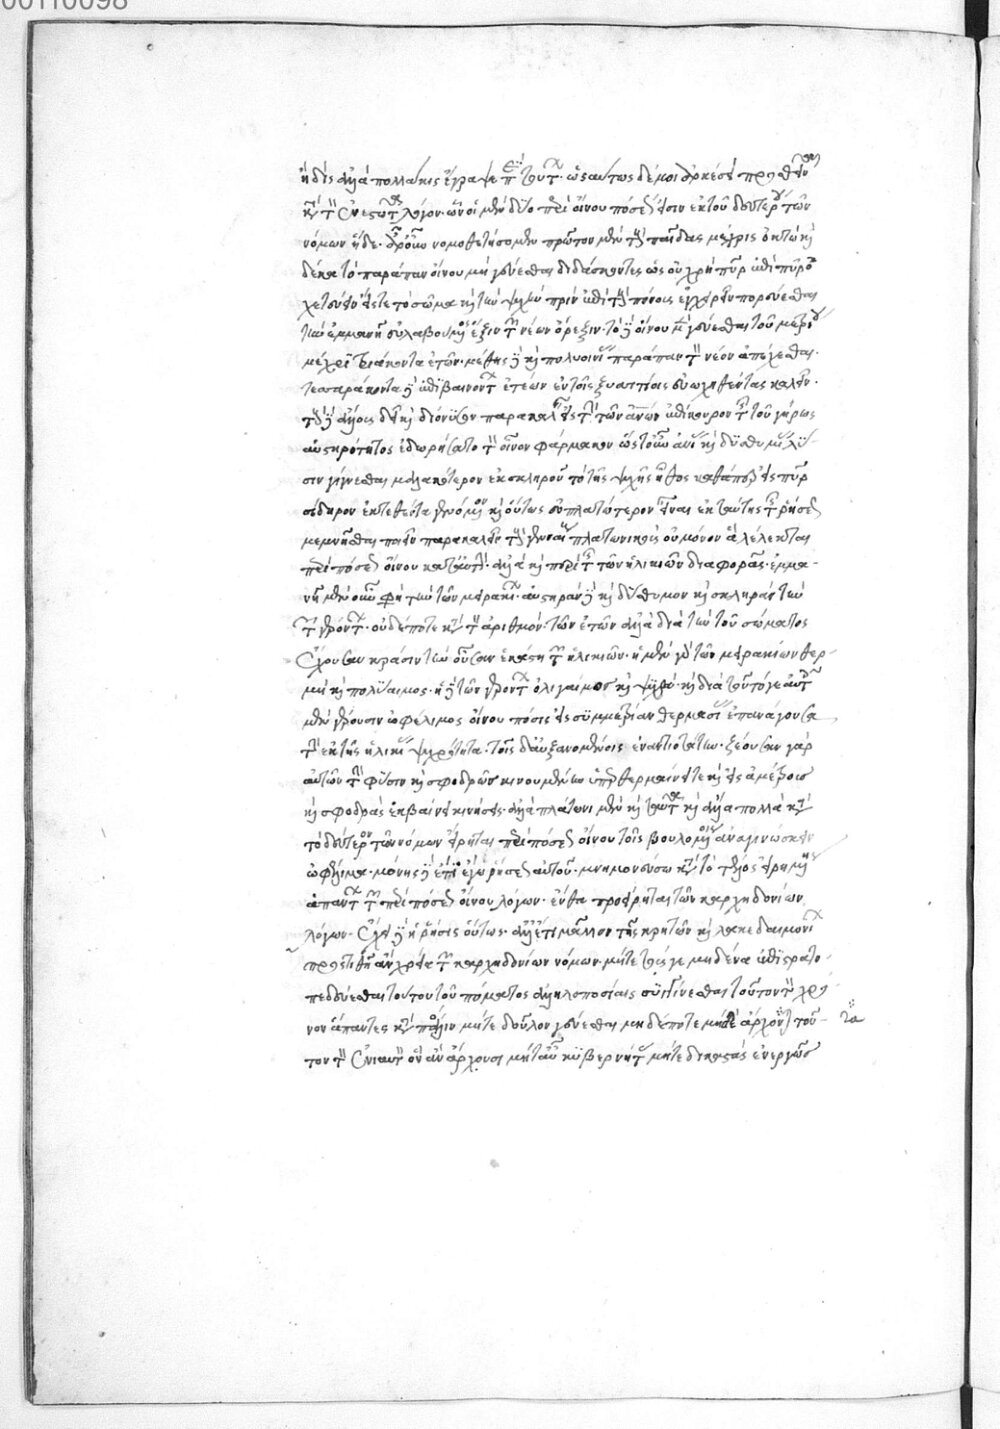 00110098
ἢ δὶς ἀλλὰ πολλάκις ἔγραψε περὶ τούτων. ὡσαύτως δέ μοι ἀρκέσει προσθεῖναι
κατὰ τὸν ἐνεστῶτα λόγον. ὧν οἱ μὲν δύο περὶ οἴνου πόσεώς εἰσιν ἐκ τοῦ δευτέρου τῶν
νόμων ἥδε. ἆρ οὖν νομοθετήσομεν πρῶτον μὲν τοὺς παῖδας μέχρις ὀκτωκαί
δεκα τὸ παράπαν οἴνου μὴ γεύεσθαι διδάσκοντες ὡς οὐ χρὴ πῦρ ἐπὶ πῦρ
ὀχετεύειν εἴς τε τὸ σῶμα καὶ τὴν ψυχὴν πρὶν ἐπὶ τοὺς πόνους ἐγχειρεῖν πορεύεσθαι
τὴν ἐμμανῆ εὐλαβούμενος ἕξιν τῶν νέων ὄρεξιν. τὸ δὲ οἴνου μὲν γεύεσθαι τοῦ μετρίου
μέχρι τριάκοντα ἐτῶν. μέθης δὲ καὶ πολυοινίας παράπαν τὸν νέον ἀπέχεσθαι.
τεσσαράκοντα δὲ ἐπιβαίνοντα ἐτέων ἐν τοῖς ξυσσιτίοις εὐωχηθέντας καλεῖν.
τούς δὲ ἄλλους θεοὺς καὶ διόνυσον παρακαλεῖν εἰς τὴν τῶν ἀνων ἐπίκουρον τὴν τοῦ γήρως
αὐστηρότητος ἐδωρήσατο τὸν οἶνον φάρμακον ὥστε καὶ δυσθυμίας λύ
σιν γίγνεσθαι μαλακώτερον ἐκ σκληροῦ τὸ τῆς ψυχῆς ἦθος καθάπερ εἰς πῦρ
σίδηρον ἐντεθέντα γενόμενον καὶ οὕτως εὐπλαστότερον εἶναι ἐκ ταύτης τῆς ῥήσεως
μεμνῆσθαι ποιεῖν παρακαλεῖν τοὺς γενναίους πλατωνικοὺς οὐ μόνον ἃ λέλεκται
περὶ πόσεως οἴνου κατ' αὐτόν. ἀλλὰ καὶ περὶ τῆς τῶν ἡλικιῶν διαφορᾶς. ἐμμα
νῆ μὲν οὖν φησι τὴν τῶν μειρακίων. αὐστηρὰν δὲ καὶ δύσθυμον καὶ σκληρὰν τὴν
τῶν γερόντων. οὐ δέποτε κατὰ τὸν ἀριθμὸν τῶν ἐτῶν ἀλλὰ διὰ τὴν τοῦ σώματος
ἔχουσαν κρᾶσιν τὴν οὖσαν ἑκάστῃ τῶν ἡλικιῶν. ἡ μὲν γὰρ τῶν μειρακίων θερ
μὴ καὶ πολύαιμος. ἡ δὲ τῶν γερόντων ὀλίγαιμος καὶ ψυχρά. καὶ διὰ τοῦτό γε αὐτοῖς
μὲν γέρουσιν ὠφέλιμος οἴνου πόσις εἰς συμμετρίαν θερμασίας ἐπανάγουσα
τὴν ἐκ τῆς ἡλικίας ψυχρότητα. τοῖς δ' αὐξανομένοις ἐναντιωτάτη. ζέουσαν γὰρ
αὐτῶν τὴν φύσιν καὶ σφοδρῶς κινουμένην ὑπερθερμαίνει τε καὶ εἰς ἀμέτρους
καὶ σφοδρὰς ἐκβαίνει κινήσεις. ἀλλὰ πλάτωνι μὲν καὶ ταῦτα καὶ ἄλλα πολλὰ κατὰ
τὸ δεύτερον τῶν νόμων εἴρηται περὶ πόσεως οἴνου τοῖς βουλομένοις ἀναγινώσκειν
ὠφέλιμα. μόνης δὲ ἔτι ἐγὼ ῥήσεως αὐτοῦ. μνημονεύσω κατὰ τὸ τέλος εἰρημένης
ἁπάντων τῶν περὶ πόσεως οἴνου λόγων. ἔνθα προείρηται τῶν καρχηδονίων
λόγων. ἔχει δὲ ἡ ῥῆσις οὕτως. ἀλλ' ἔτι μᾶλλον τῆς κρητῶν καὶ λακεδαιμονίων
προστιθεὶς ἂν χρείᾳ τῶν καρχηδονίων νόμῳ. μήτε τοῖς γε μηδένα ἐπὶ στρατο
πέδου γεύεσθαι τούτου τοῦ πόματος ἀλλ' ὑδροποσίαις συγγίνεσθαι τοῦτον τὸν χρό
νον ἅπαντες κατὰ πόλιν μήτε δοῦλον γεύεσθαι μηδέποτε μηδὲ ἄρχοντας τοῦ
τον τὸν ἐνιαυτὸν ὃν ἂν ἄρχουσι μήτ' αὖ κυβερνήτας μήτε δικαστὰς ἐνεργοὺς